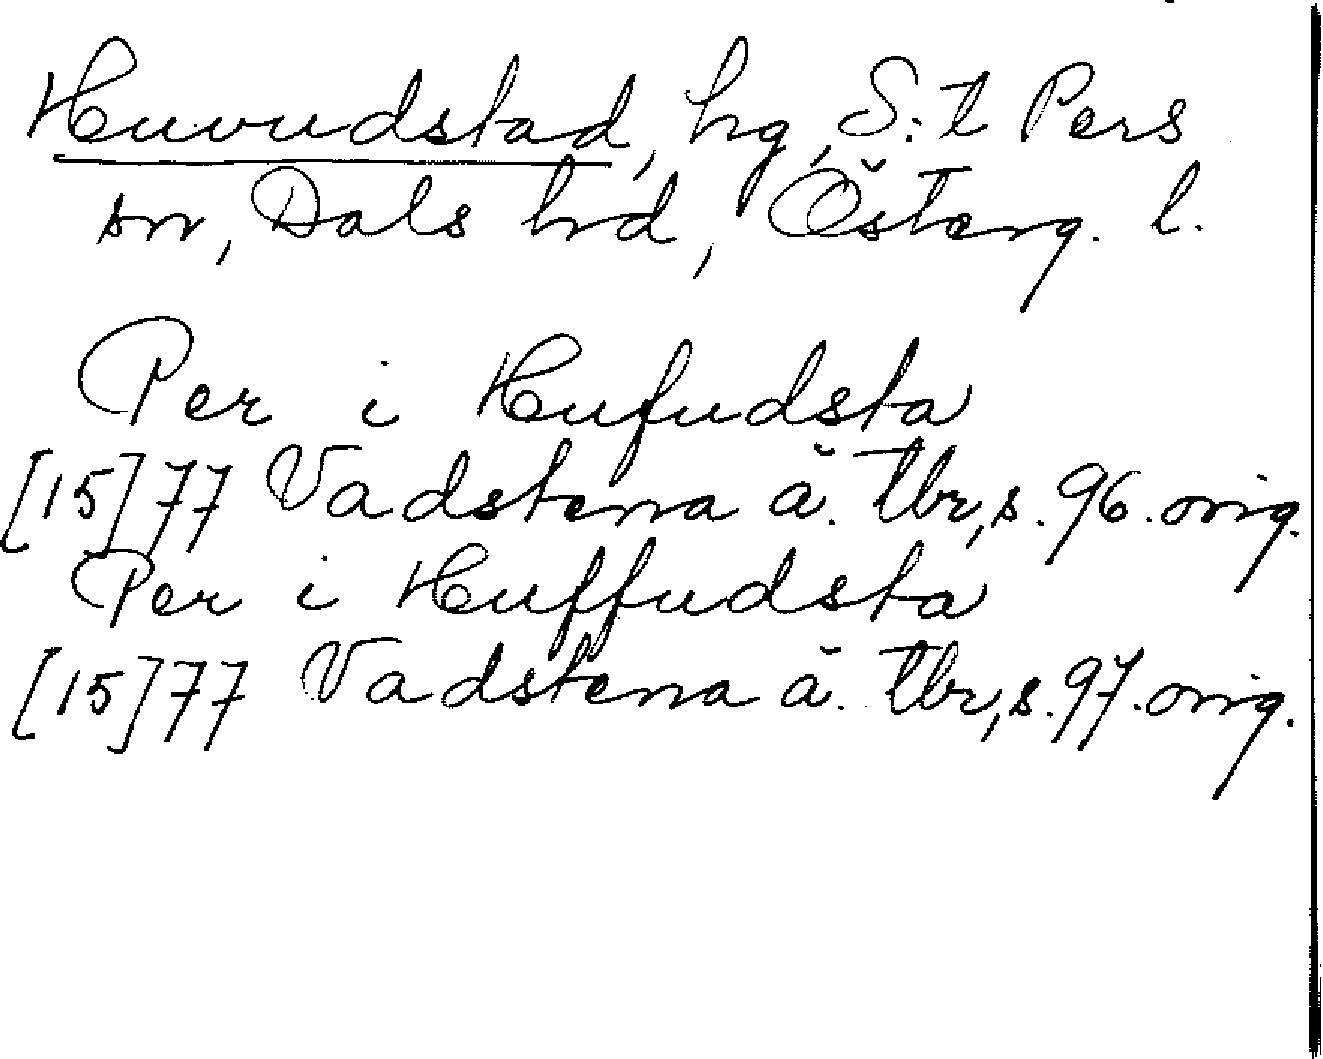 Huvudstad, hg, S:t Pers
sn, Dals hd, Österg. l.
Per i Hufudsta
[15]77 Vadstena ä. tbr, s. 96. orig.
Per i Huffudsta
[15]77 Vadstena ä. tbr, s. 97. orig.